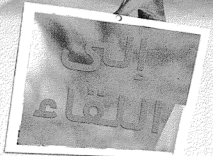 إلى
اللقاء